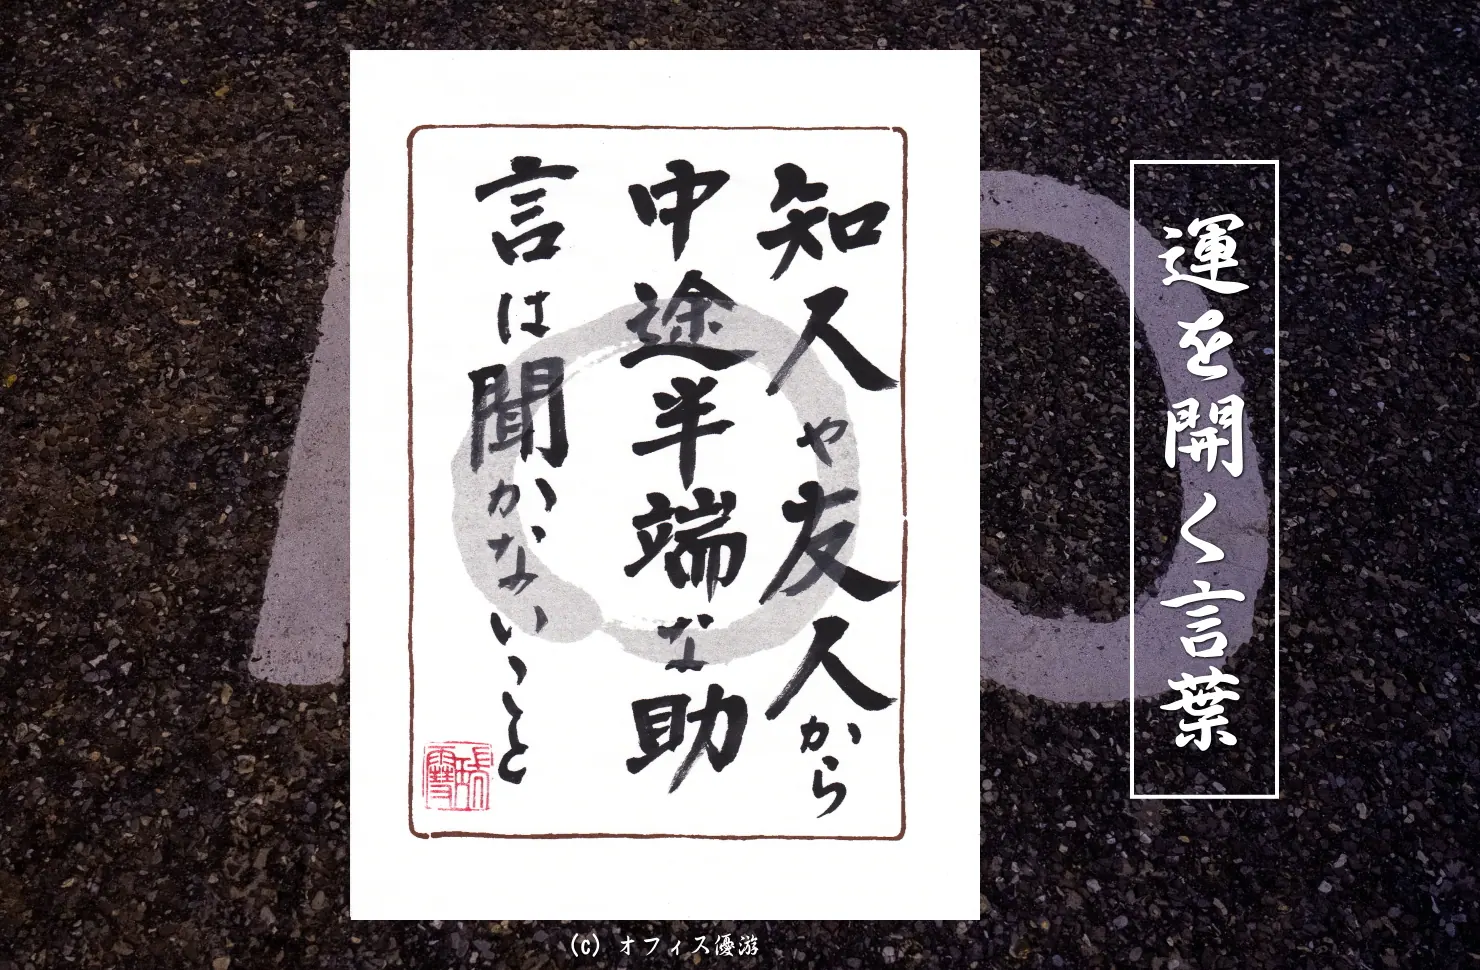 運を開く言葉
知人や友人から
中途半端な助
言は聞かないこと
(c) オフィス優游